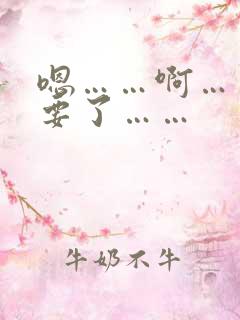 嗯……啊…
要了……
牛奶不牛